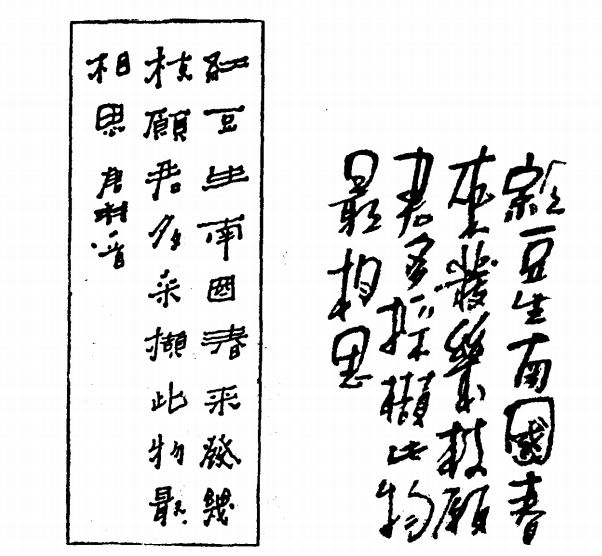 紅豆生南国春来發幾
枝願君多采擷此物最
相思 唐詩一首
紅豆生南國春
來發幾枝願
君多採擷此物
最相思